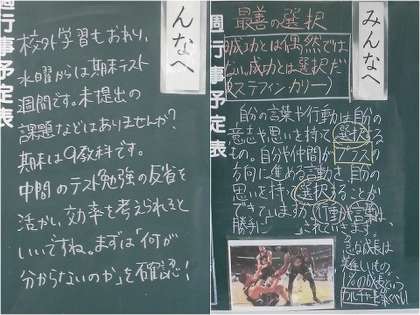 んなへ
週行事予定表
校外学習もおわり、
水曜からは期末テスト
週間です。未提出の
課題などはありませんか？
期末は9教科です。
中間のテスト勉強の反省を
活かし、効率を考えられると
いいですね。まずは「何が
分からないのか」を確認！
みんなへ
週行事予定表
最善の選択
成功とは偶然では
ない。成功とは選択だ
(ステフィンカリー)
自分の言葉や行動は自分の
意志や思いを持って選択する
もの。自分や仲間がプラスの
方向に進める言動を、自分の
思いを持って選択することが
できていますか。行動や言葉は、
勝手に
されていきます。
急な成長は
難しいもの。